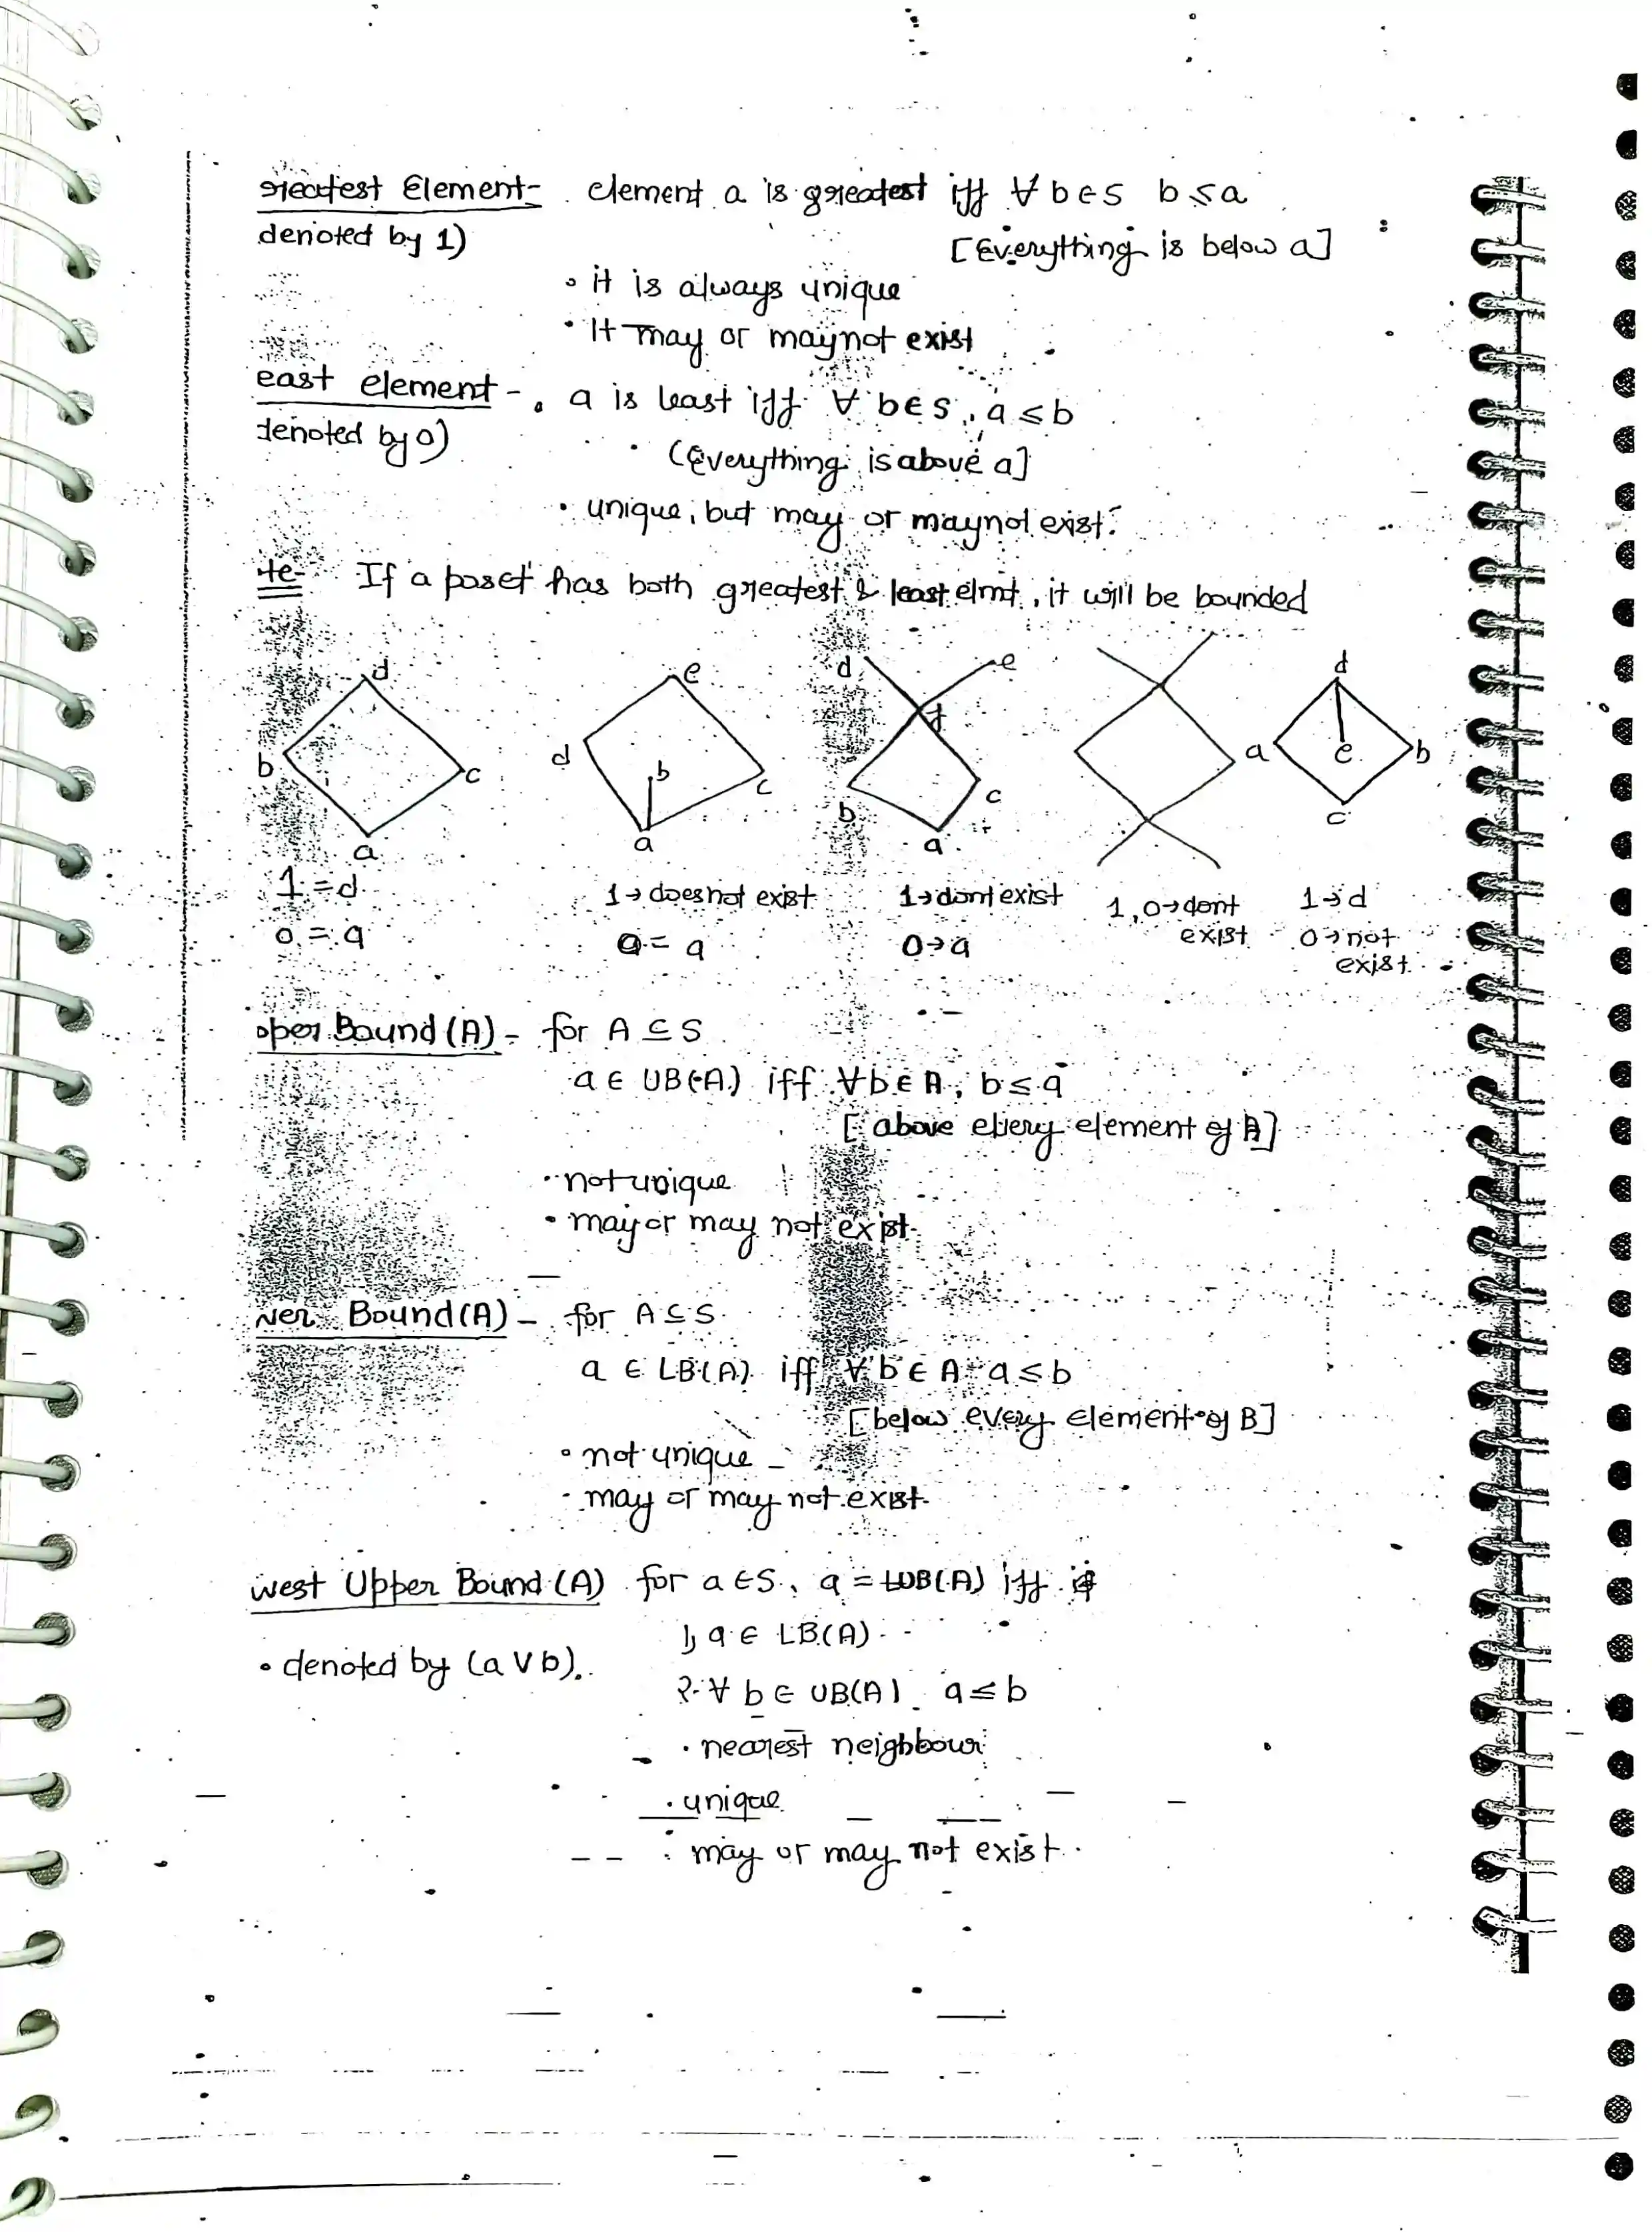 reatest Element- element a is greatest iff ∀ b ∈ S b ≤ a
denoted by 1)
[Everything is below a]
• it is always unique
• It may or maynot exist
east element - • a is least iff ∀ b ∈ S, a ≤ b
denoted by 0)
• (Everything is above a]
• unique, but may or maynot exist.
te- If a poset has both greatest & least elmt, it will be bounded
d b c a
e d b c a
d e f b c a
d a e b c
1 = d
0 = a
1→does not exist
0 = a
1→dont exist
0→a
1,0→dont
exist
1→d
0→not
exist
pper Bound (A) - for A ⊆ S
a ∈ UB(A) iff ∀ b ∈ A, b ≤ a
[above every element of A]
• not unique
• may or may not exist.
wer Bound(A) - for A ⊆ S
a ∈ LB(A) iff ∀ b ∈ A a ≤ b
[below every element of B]
• not unique
- may or may not exist.
west Upper Bound (A) for a ∈ S, a = LUB(A) iff
1, a ∈ LB(A)
• denoted by (a ∨ b).
2. ∀ b ∈ UB(A) a ≤ b
• nearest neighbour
• unique
• may or may not exist.